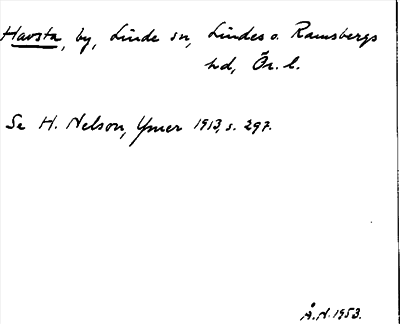 Havsta, by, Linde sn, Lindes o. Ramsbergs
hd, Ör. l.
Se H. Nelson, Ymer 1913, s. 297.
Å. H. 1953.